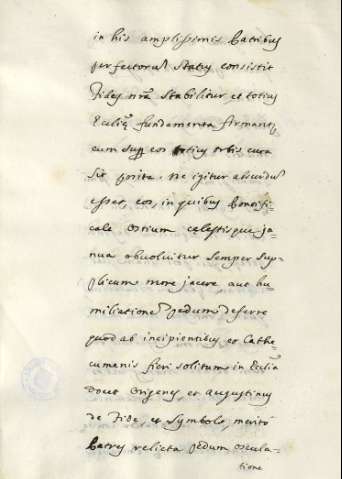 in his amplissimis Patribus
perfectorum Status consistit
Fides nrã stabilitur et totius
Eccliẽ fundamenta firmant,
cum sup eos totius orbis cura
sit posita. Ne igitur absurdũ
esset, eos, in quibus Pontifi=
cale Ostium celestisque ja=
nua obvolvitur semper sup=
plicum more jacere aut hu=
miliatione pedum deferre
quod ab incipientibus et Cathe=
cumenis fieri solitum in Ecclia
docet Origenes et Augustinus
de Fide et Symbolo, meritò
Patres relicta pedum oscula=
tione